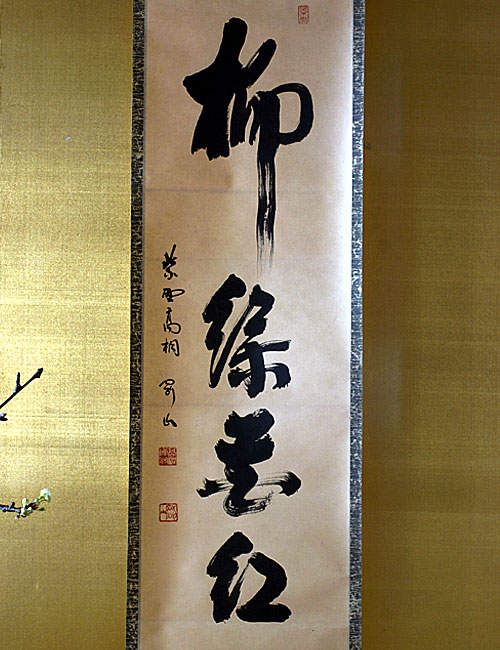 柳緑花紅
紫野高桐 剛山